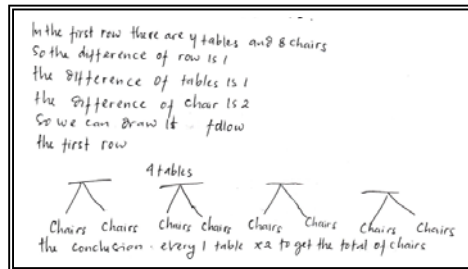 In the first row there are 4 tables and 8 chairs
So the difference of row is 1
the difference of tables is 1
the difference of chair is 2
So we can draw it follow
the first row
4 tables
Chairs Chairs Chairs Chairs Chairs Chairs Chairs Chairs
the conclusion. every 1 table x2 to get the total of chairs